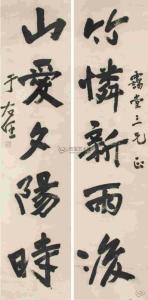 竹憐新雨後
靄堂三兄正
山愛夕陽時
于右任